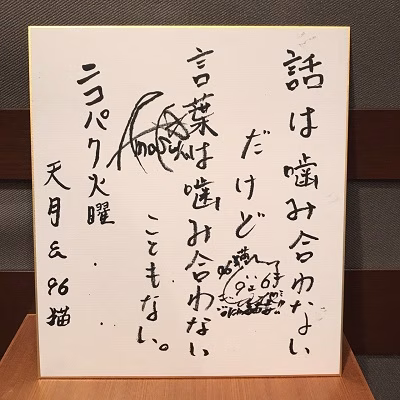 話は噛み合わない
だけど
言葉は噛み合わない
こともない。
ニコパク火曜
天月&96猫